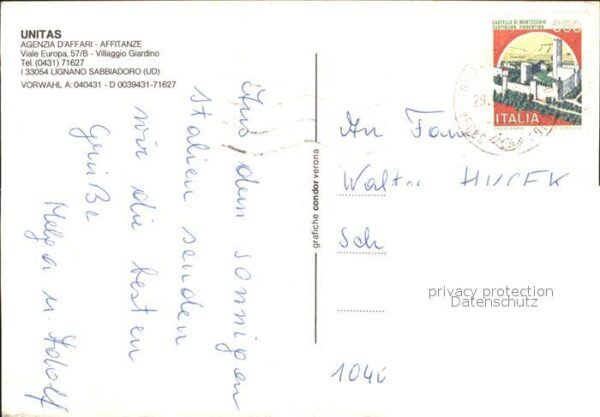 UNITAS
AGENZIA D'AFFARI - AFFITANZE
Viale Europa, 57/B - Villaggio Giardino
Tel. (0431) 71627
I 33054 LIGNANO SABBIADORO (UD)
VORWAHL A: 040431 - D 0039431-71627
Aus dem sonnigen
Italien senden
wir die besten
Grüße
Helga u. Adolf
grafiche condor verona
CASTELLO DI MONTECCHIO
CASTIGLION FIORENTINO
650
ITALIA
An Fam
Walter
Sch
1040
privacy protection
Datenschutz